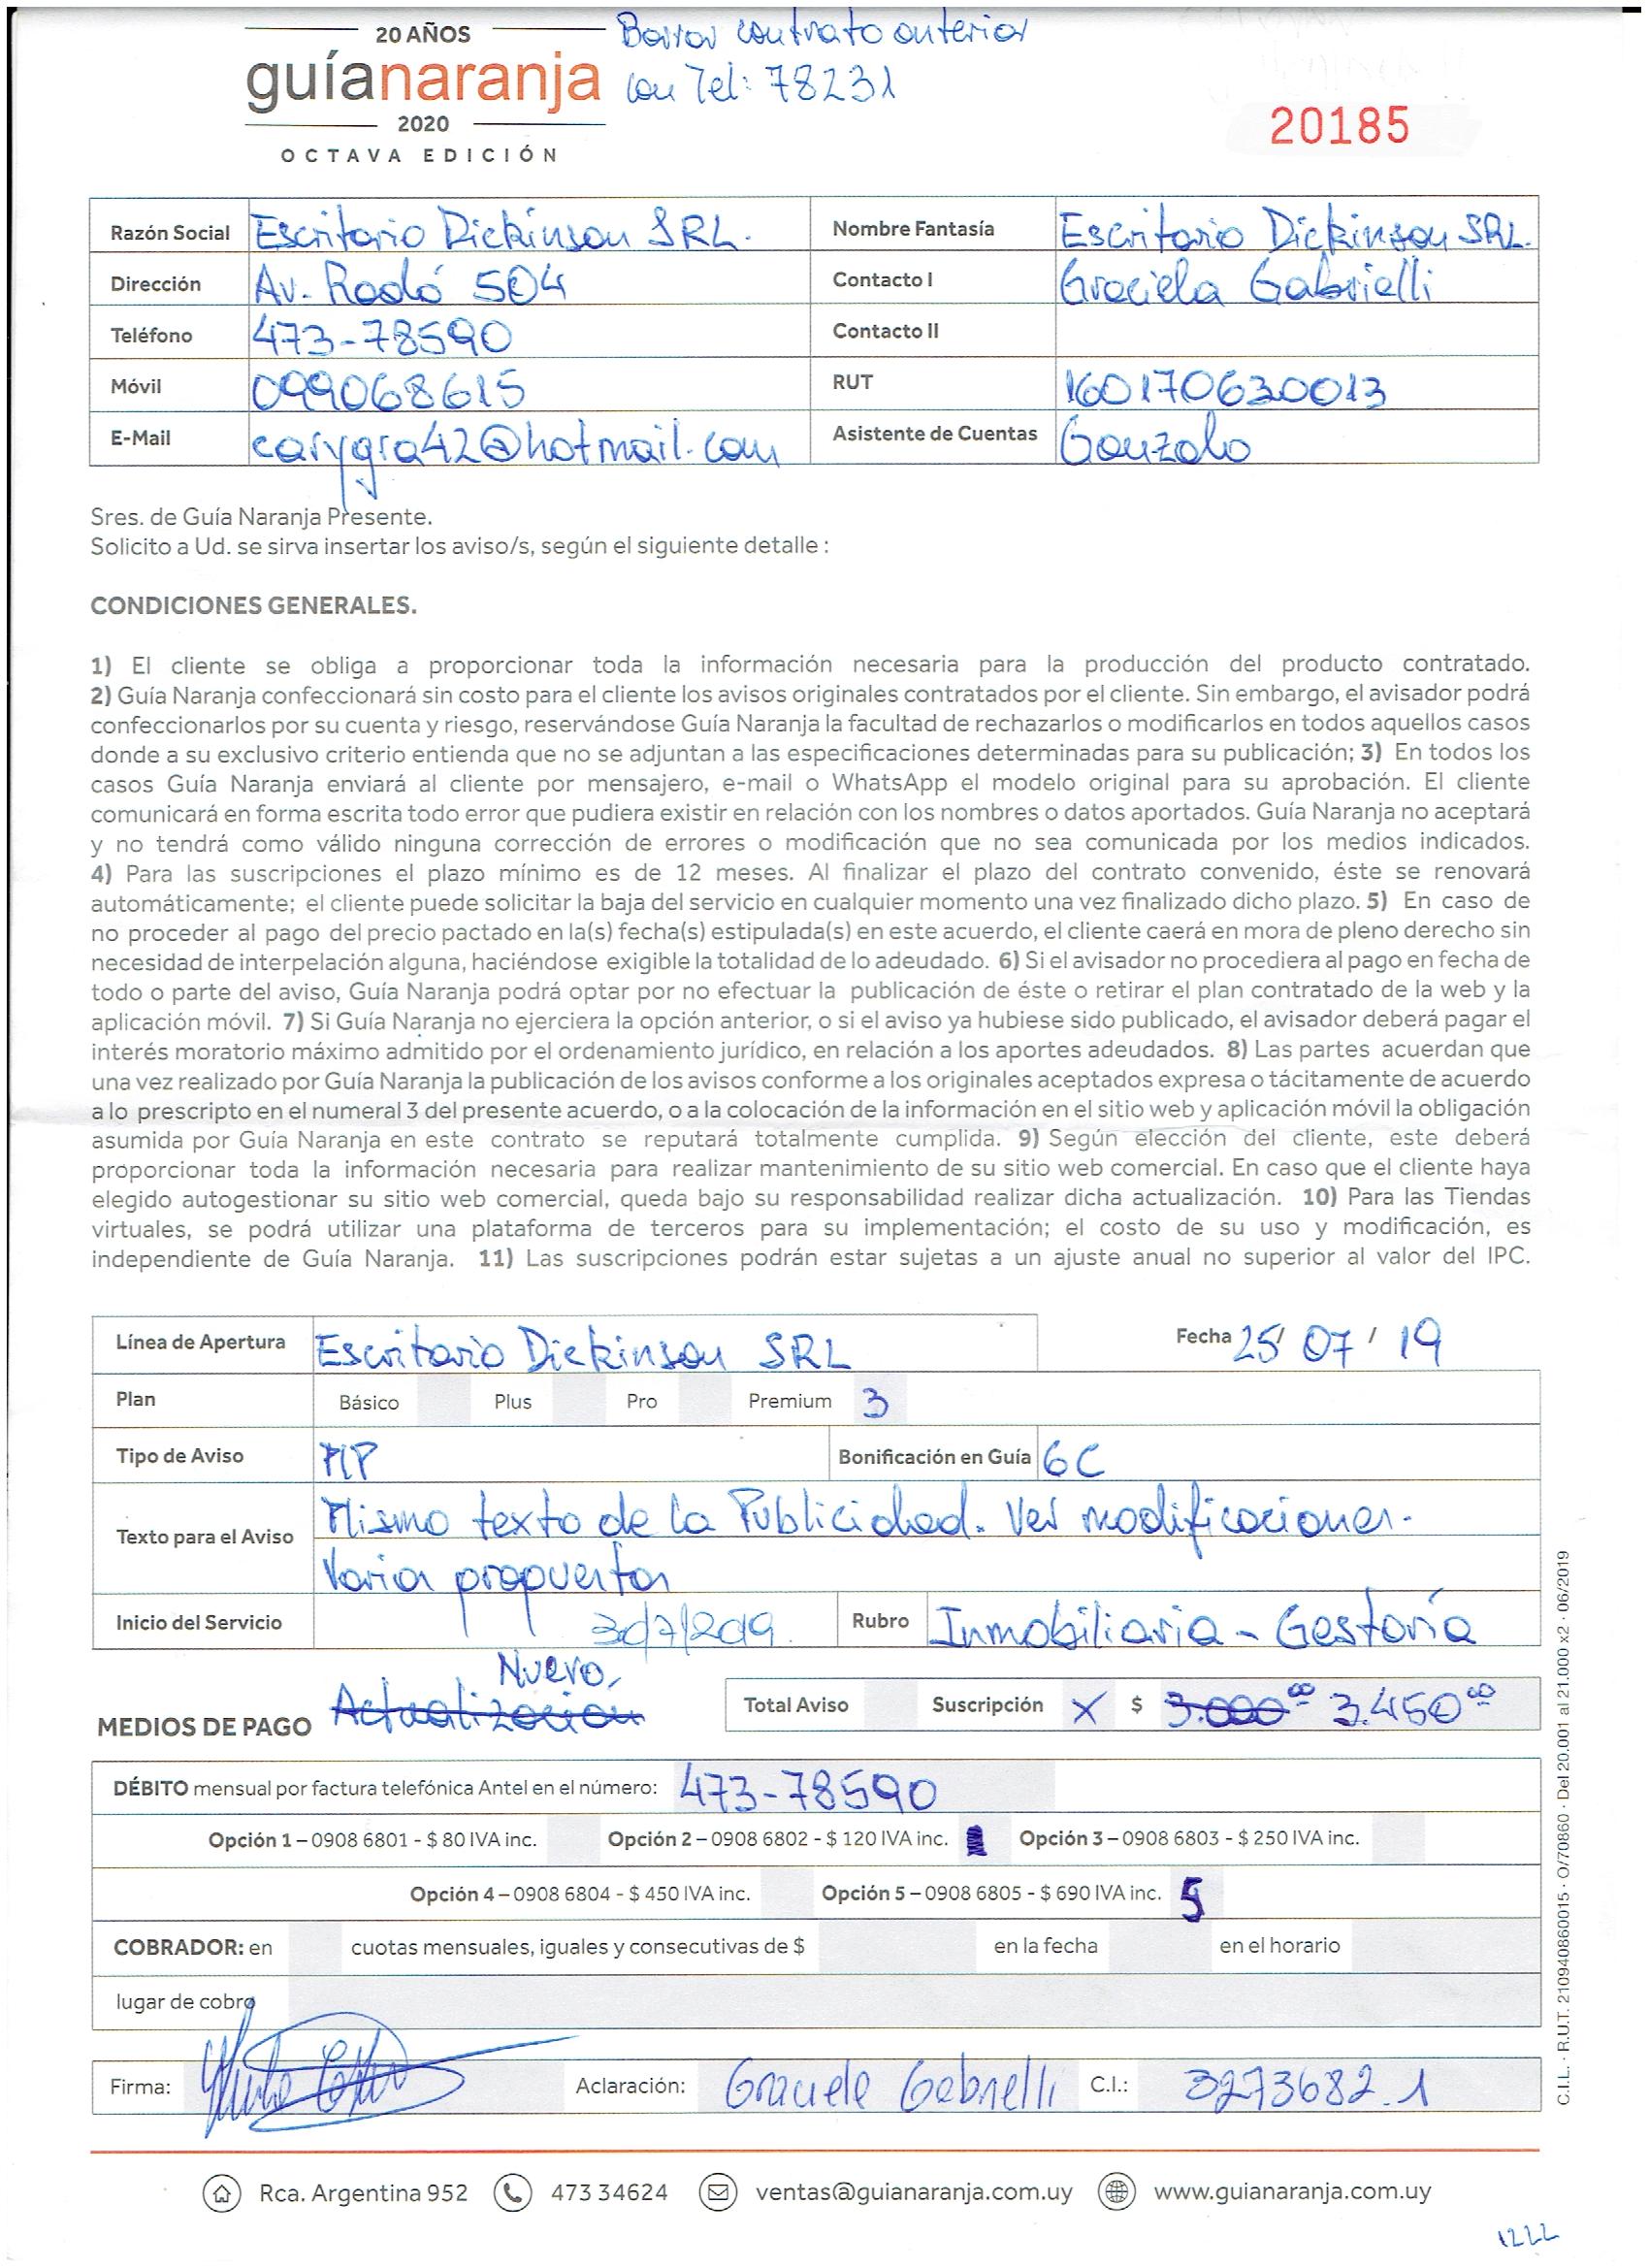 20 AÑOS
guíanaranja
2020
OCTAVA EDICIÓN
Borrar contrato anterior
con Tel: 78231
20185
Razón Social Escritorio Dickinson SRL. Nombre Fantasía Escritorio Dickinson SRL.
Dirección Av. Rodó 504 Contacto I Graciela Gabrielli
Teléfono 473-78590 Contacto II
Móvil 099068615 RUT 160170630013
E-Mail carygra42@hotmail.com Asistente de Cuentas Gonzalo
Sres. de Guía Naranja Presente.
Solicito a Ud. se sirva insertar los aviso/s, según el siguiente detalle :
CONDICIONES GENERALES.
1) El cliente se obliga a proporcionar toda la información necesaria para la producción del producto contratado.
2) Guía Naranja confeccionará sin costo para el cliente los avisos originales contratados por el cliente. Sin embargo, el avisador podrá
confeccionarlos por su cuenta y riesgo, reservándose Guía Naranja la facultad de rechazarlos o modificarlos en todos aquellos casos
donde a su exclusivo criterio entienda que no se adjuntan a las especificaciones determinadas para su publicación; 3) En todos los
casos Guía Naranja enviará al cliente por mensajero, e-mail o WhatsApp el modelo original para su aprobación. El cliente
comunicará en forma escrita todo error que pudiera existir en relación con los nombres o datos aportados. Guía Naranja no aceptará
y no tendrá como válido ninguna corrección de errores o modificación que no sea comunicada por los medios indicados.
4) Para las suscripciones el plazo mínimo es de 12 meses. Al finalizar el plazo del contrato convenido, éste se renovará
automáticamente; el cliente puede solicitar la baja del servicio en cualquier momento una vez finalizado dicho plazo. 5) En caso de
no proceder al pago del precio pactado en la(s) fecha(s) estipulada(s) en este acuerdo, el cliente caerá en mora de pleno derecho sin
necesidad de interpelación alguna, haciéndose exigible la totalidad de lo adeudado. 6) Si el avisador no procediera al pago en fecha de
todo o parte del aviso, Guía Naranja podrá optar por no efectuar la publicación de éste o retirar el plan contratado de la web y la
aplicación móvil. 7) Si Guía Naranja no ejerciera la opción anterior, o si el aviso ya hubiese sido publicado, el avisador deberá pagar el
interés moratorio máximo admitido por el ordenamiento jurídico, en relación a los aportes adeudados. 8) Las partes acuerdan que
una vez realizado por Guía Naranja la publicación de los avisos conforme a los originales aceptados expresa o tácitamente de acuerdo
a lo prescripto en el numeral 3 del presente acuerdo, o a la colocación de la información en el sitio web y aplicación móvil la obligación
asumida por Guía Naranja en este contrato se reputará totalmente cumplida. 9) Según elección del cliente, este deberá
proporcionar toda la información necesaria para realizar mantenimiento de su sitio web comercial. En caso que el cliente haya
elegido autogestionar su sitio web comercial, queda bajo su responsabilidad realizar dicha actualización. 10) Para las Tiendas
virtuales, se podrá utilizar una plataforma de terceros para su implementación; el costo de su uso y modificación, es
independiente de Guía Naranja. 11) Las suscripciones podrán estar sujetas a un ajuste anual no superior al valor del IPC.
Línea de Apertura Escritorio Dickinson SRL Fecha 25/ 07 / 19
Plan Básico Plus Pro Premium 3
Tipo de Aviso MP Bonificación en Guía 6C
Texto para el Aviso Mismo texto de la Publicidad. Ver modificaciones.
Varias propuestas
Inicio del Servicio 30/7/2019. Rubro Inmobiliaria - Gestoría
Nuevo,
MEDIOS DE PAGO Actualizacion Total Aviso Suscripción X $ 3.000⁰⁰ 3.450⁰⁰
DÉBITO mensual por factura telefónica Antel en el número: 473-78590
Opción 1 – 0908 6801 - $ 80 IVA inc. Opción 2 – 0908 6802 - $ 120 IVA inc. Opción 3 – 0908 6803 - $ 250 IVA inc.
Opción 4 – 0908 6804 - $ 450 IVA inc. Opción 5 – 0908 6805 - $ 690 IVA inc. 5
COBRADOR: en cuotas mensuales, iguales y consecutivas de $ en la fecha en el horario
lugar de cobro
Firma: Aclaración: Graciela Gabrielli C.I.: 3273682.1
Rca. Argentina 952 473 34624 ventas@guianaranja.com.uy www.guianaranja.com.uy
C.I.L. · R.U.T. 210940860015 · O/70860 · Del 20.001 al 21.000 x2 · 06/2019